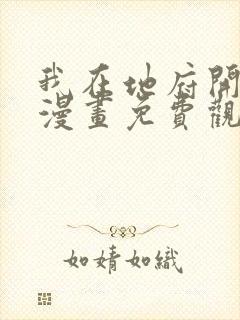 我在地府開
漫畫免費觀
如婧如織